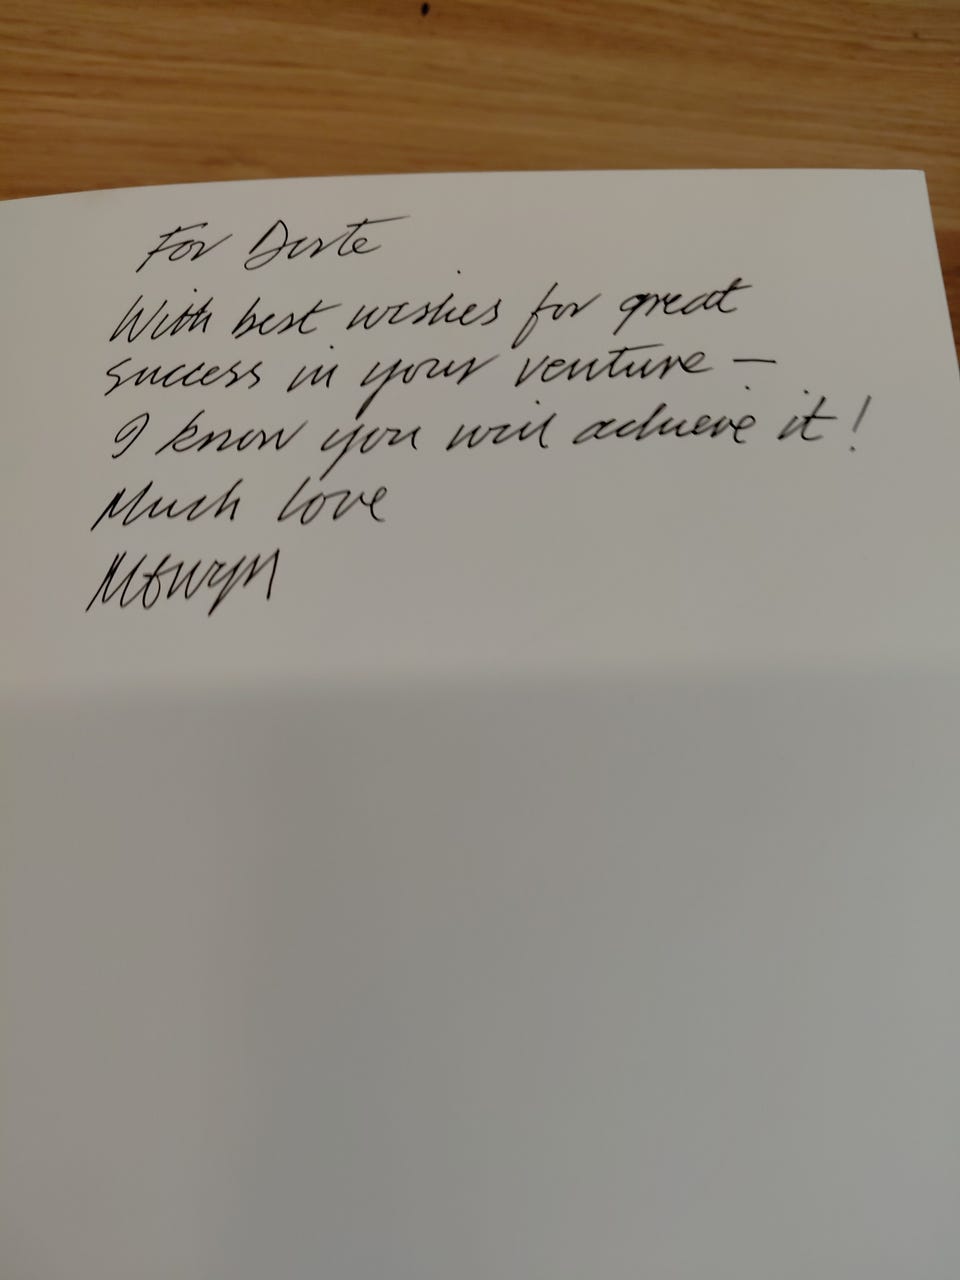 For Dorte
With best wishes for great
success in your venture —
I know you will achieve it!
Much love